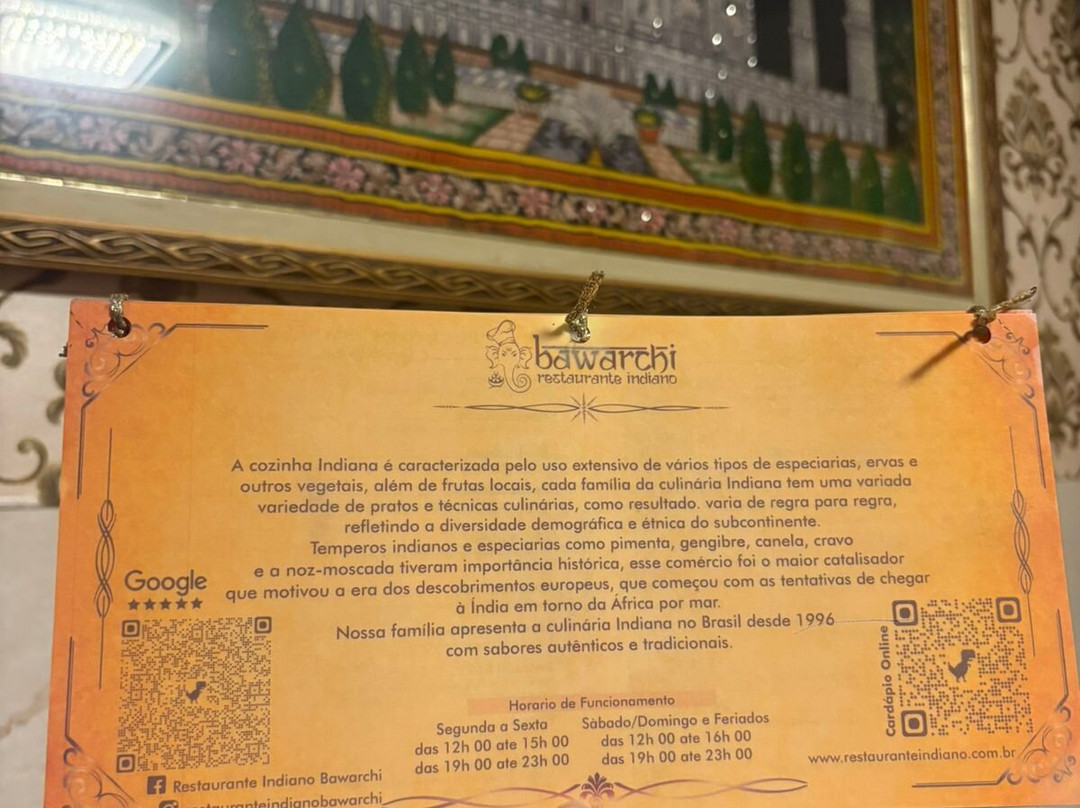 bawarchi
restaurante indiano
A cozinha Indiana é caracterizada pelo uso extensivo de vários tipos de especiarias, ervas e
outros vegetais, além de frutas locais, cada família da culinária Indiana tem uma variada
variedade de pratos e técnicas culinárias, como resultado. varia de regra para regra,
refletindo a diversidade demográfica e étnica do subcontinente.
Temperos indianos e especiarias como pimenta, gengibre, canela, cravo
e a noz-moscada tiveram importância histórica, esse comércio foi o maior catalisador
que motivou a era dos descobrimentos europeus, que começou com as tentativas de chegar
à Índia em torno da África por mar.
Nossa família apresenta a culinária Indiana no Brasil desde 1996
com sabores autênticos e tradicionais.
Google
Cardápio Online
Horario de Funcionamento
Segunda a Sexta
das 12h 00 ate 15h 00
das 19h 00 ate 23h 00
Sàbado/Domingo e Feriados
das 12h 00 ate 16h 00
das 19h 00 ate 23h 00
www.restauranteindiano.com.br
Restaurante Indiano Bawarchi
restauranteindianobawarchi